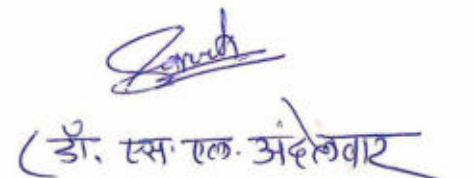 (डॉ. एस. एल. अंदेलवार